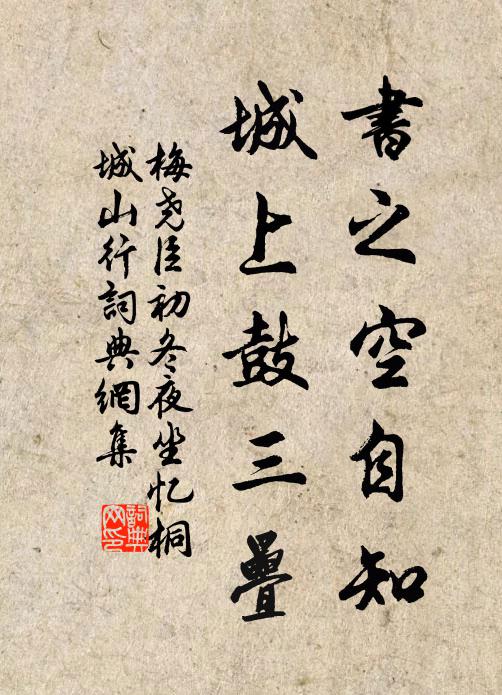 書之空自知
城上鼓三疊
梅堯臣初冬夜坐忆桐
城山行詞典網集
詞典網印